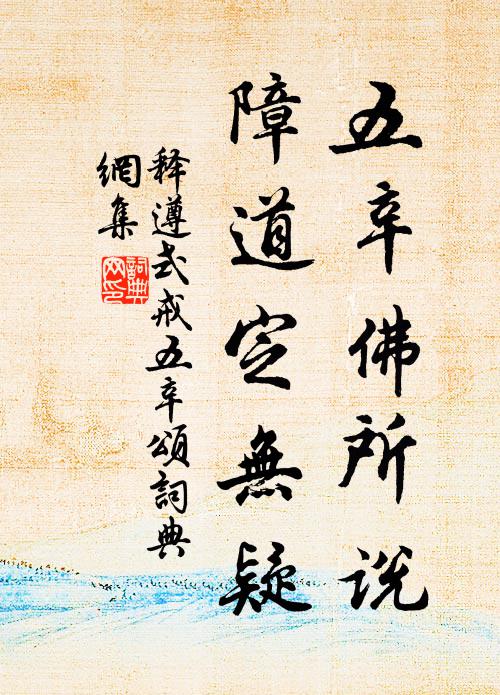 五辛佛所说
障道定無疑
释遵式戒五辛頌詞典
網集
詞典
网印